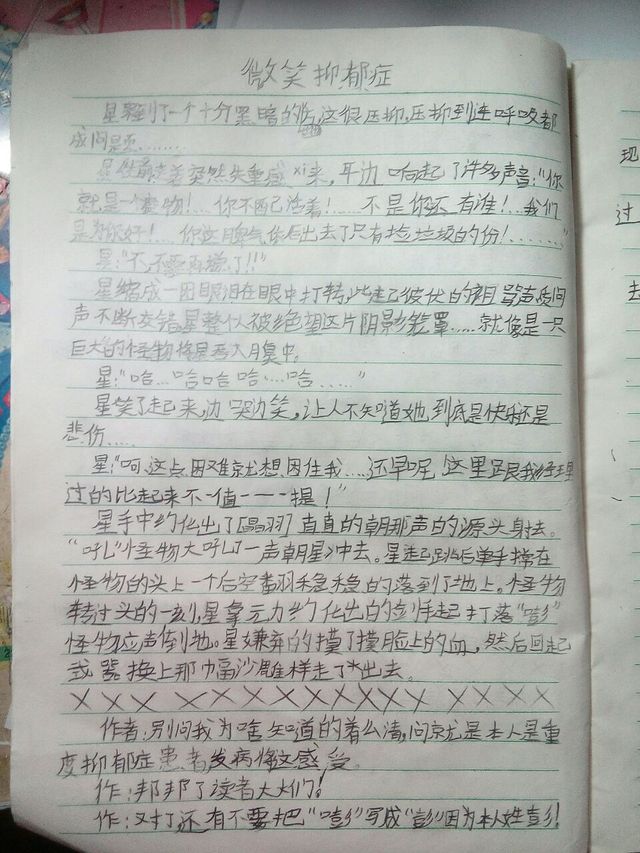 微笑抑郁症
星来到了一个十分黑暗的 这很压抑,压抑到连呼吸都
成问是页........
星 突然失重感xi来,耳边响起了许多声音:"你
就是一个 物!...你不配已活着!.....不是你还有谁!...我们
是为你好!...你这脾气你后出去了只有捡垃圾的份!.......
星:"不,不要再 了!!"
星缩成一团眼泪在眼中打转,此起彼伏的 骂声质问
声不断交错星整 被绝望这片阴影笼罩.....就像是一只
巨大的怪物将星吞入月复中。
星:"哈...哈哈哈....哈.....
星笑了起来,边哭边笑,让人不知道她到底是快乐还是
悲伤....
星:"呵,这点困难就想困住我....还早呢 这里跟我经理
过的比起来不值一一提!"
星手中幻化出了[晶羽]直直的朝那声的源头射去。
"吼"怪物大吼了一声朝星冲去。星起跳后单手撑在
怪物的头上一个后空翻羽稳稳的落到了地上。怪物
转过头的一刻,星拿元力幻化出的剑手起打落"嘭"
怪物应声倒地。星嫌弃的摸了摸脸上的血,然后回起
武器换上那幅沙雕样走了出去。
XXXXXXXXXXXXXXXX
作者:别问我为啥知道的着么清,问就是本人是重
度抑郁症患者发病将这感受。
作:邦邦了读者大大们!
作:又打还有不要把"嘭"写成"彭"因为本人姓彭!
现
过
去